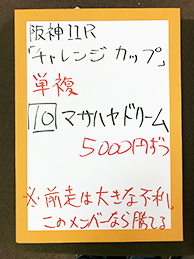 阪神11R
「チャレンジカップ」
単複
10 マサハヤドリーム
5000円ずつ
※前走は大きな不利。
このメンバーなら勝てる